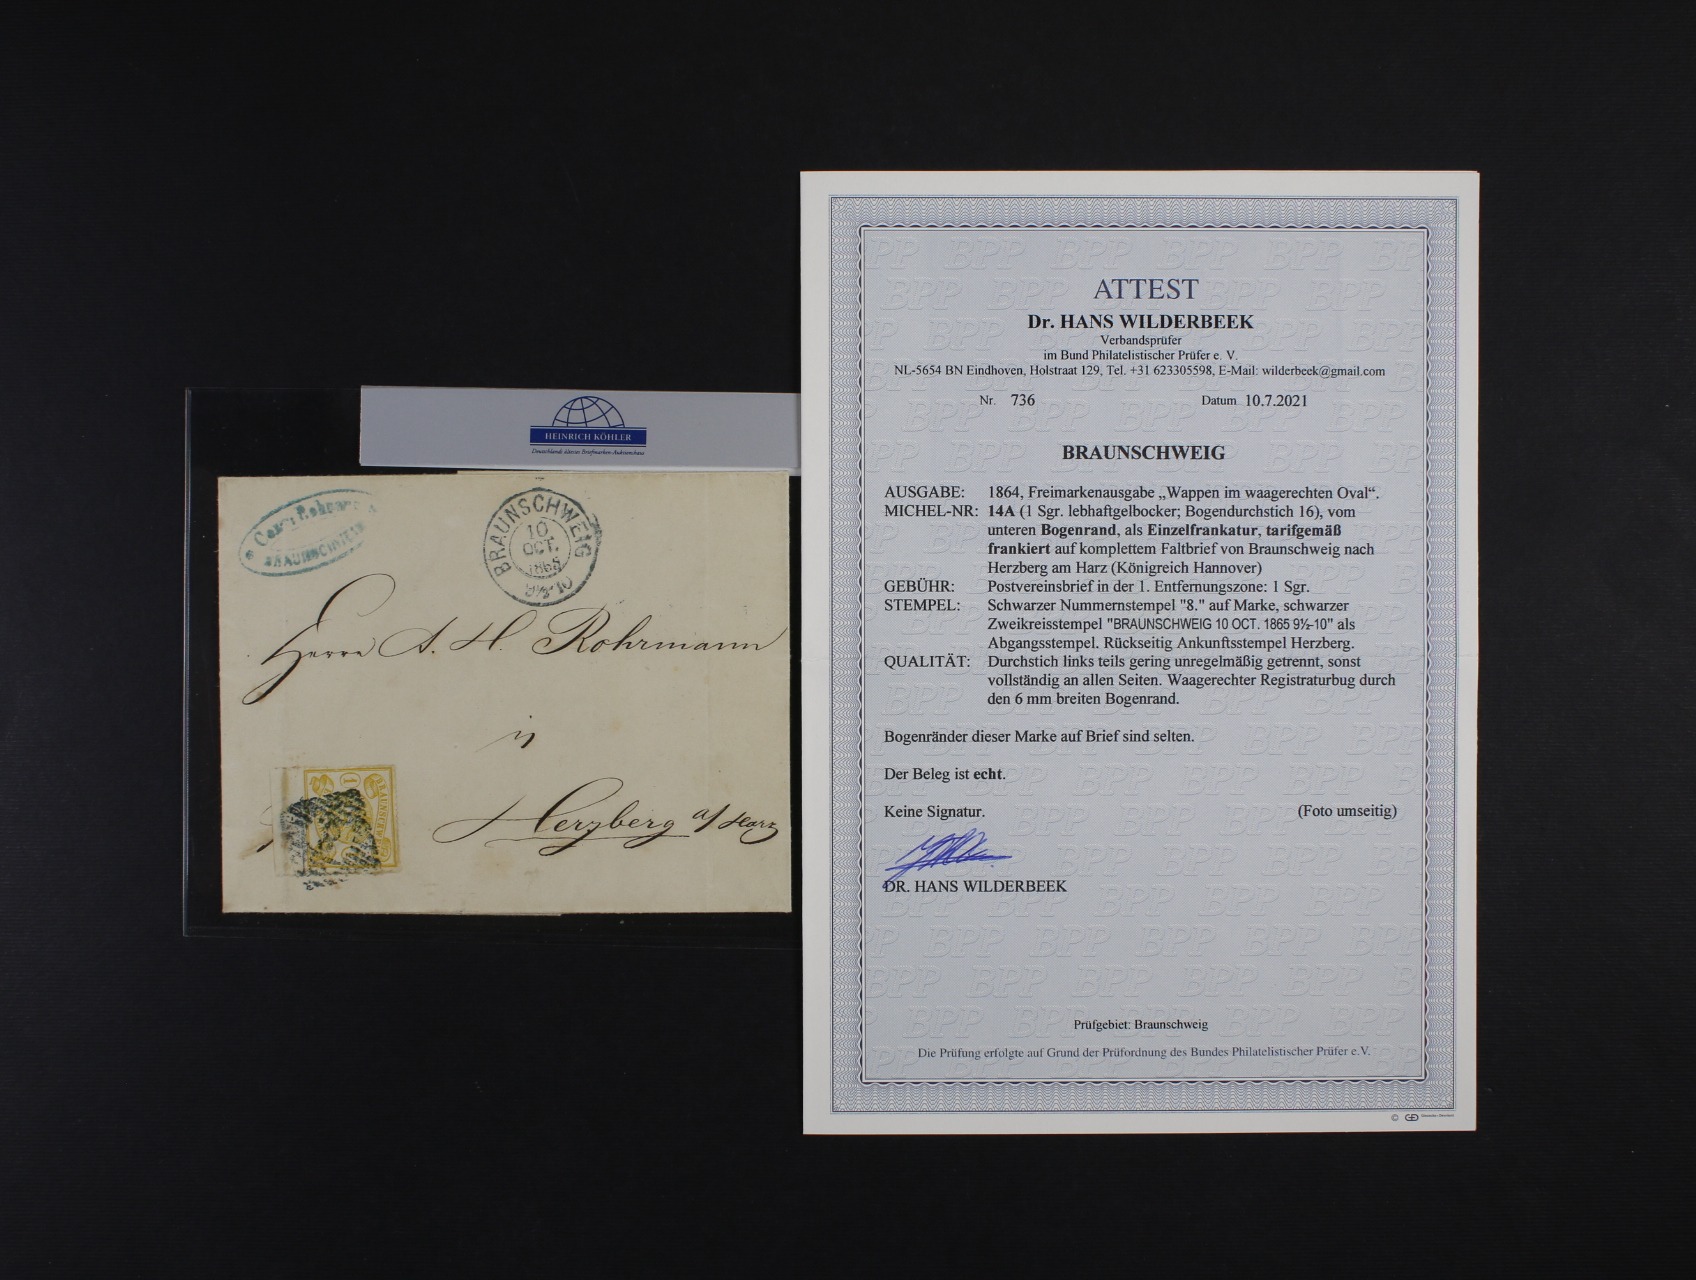 HEINRICH KÖHLER
Deutschlands ältestes Briefmarken-Auktionshaus
BRAUNSCHWEIG
10
OCT.
1865
9½-10
Herrn A. H. Rohrmann
in
Herzberg a/Harz
BRAUNSCHW
1
ATTEST
Dr. HANS WILDERBEEK
Verbandsprüfer
im Bund Philatelistischer Prüfer e. V.
NL-5654 BN Eindhoven, Holstraat 129, Tel. +31 623305598, E-Mail: wilderbeek@gmail.com
Nr. 736 Datum 10.7.2021
BRAUNSCHWEIG
AUSGABE: 1864, Freimarkenausgabe „Wappen im waagerechten Oval“.
MICHEL-NR: 14A (1 Sgr. lebhaftgelbocker; Bogendurchstich 16), vom
unteren Bogenrand, als Einzelfrankatur, tarifgemäß
frankiert auf komplettem Faltbrief von Braunschweig nach
Herzberg am Harz (Königreich Hannover)
GEBÜHR: Postvereinsbrief in der 1. Entfernungszone: 1 Sgr.
STEMPEL: Schwarzer Nummernstempel "8." auf Marke, schwarzer
Zweikreisstempel "BRAUNSCHWEIG 10 OCT. 1865 9½-10" als
Abgangsstempel. Rückseitig Ankunftsstempel Herzberg.
QUALITÄT: Durchstich links teils gering unregelmäßig getrennt, sonst
vollständig an allen Seiten. Waagerechter Registraturbug durch
den 6 mm breiten Bogenrand.
Bogenränder dieser Marke auf Brief sind selten.
Der Beleg ist echt.
Keine Signatur. (Foto umseitig)
DR. HANS WILDERBEEK
Prüfgebiet: Braunschweig
Die Prüfung erfolgte auf Grund der Prüfordnung des Bundes Philatelistischer Prüfer e.V.